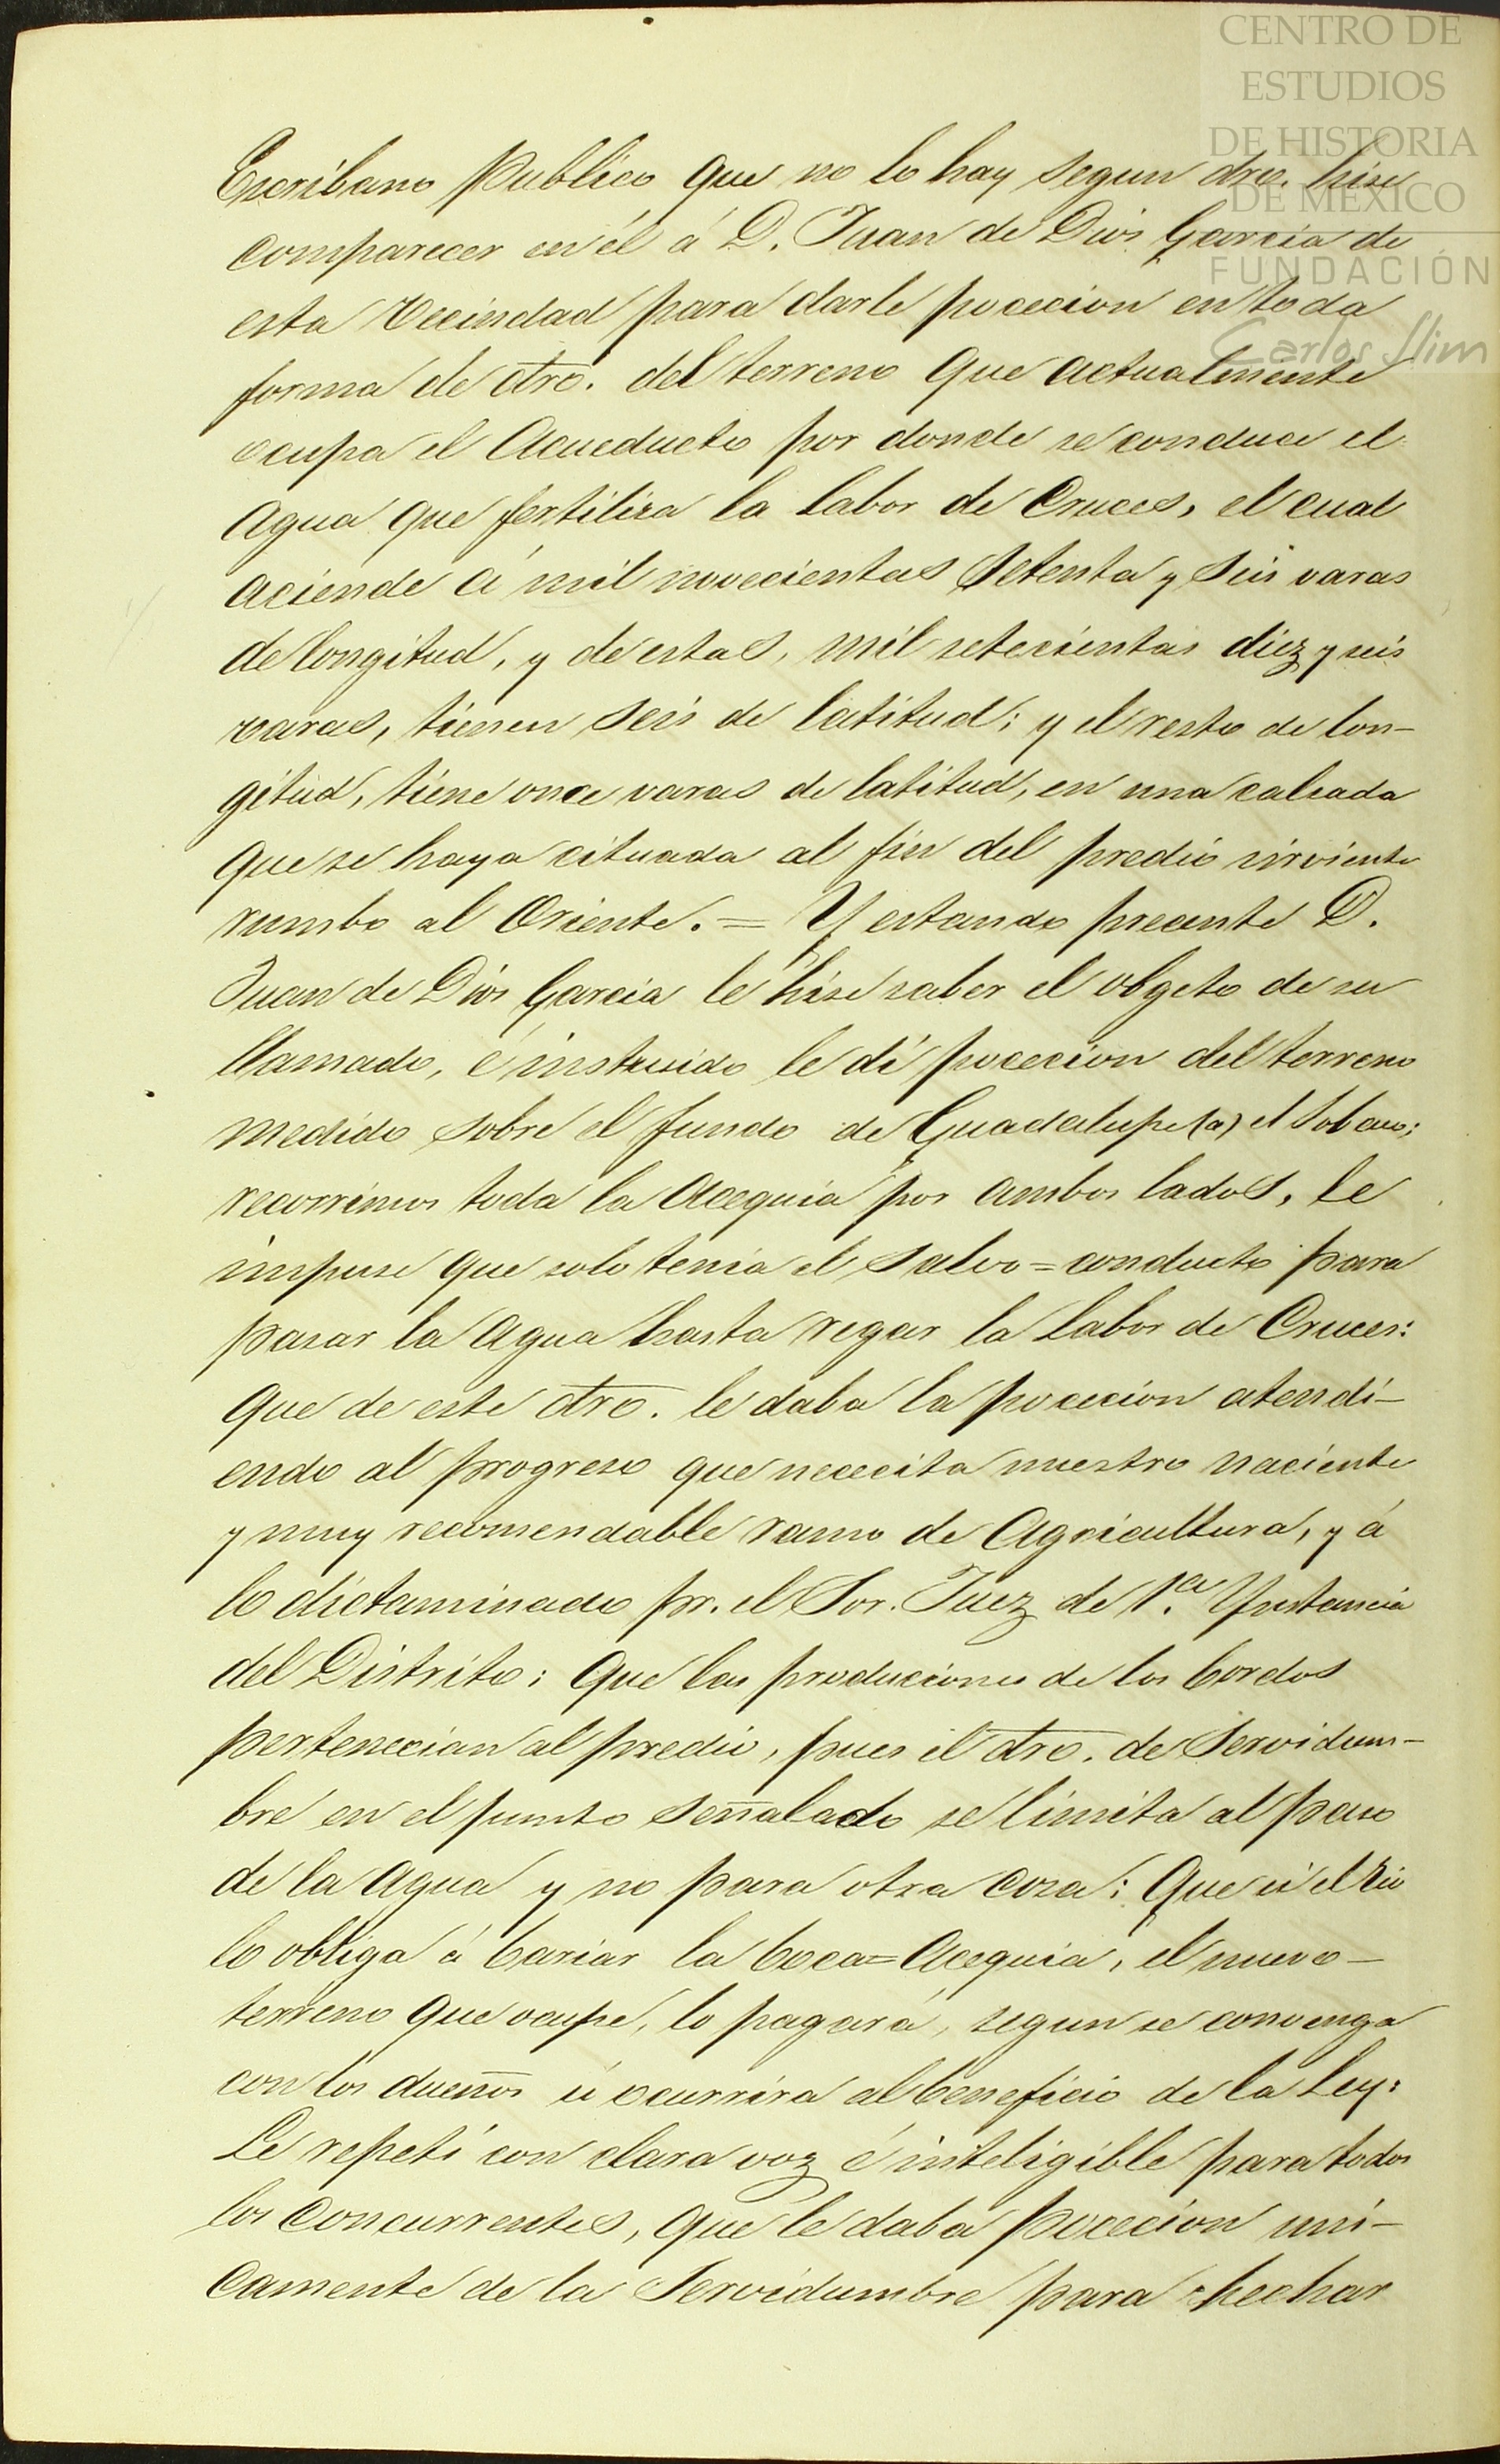 CENTRO DE
ESTUDIOS
DE HISTORIA
DE MEXICO
FUNDACIÓN
Carlos Slim
Escribano Publico que no lo hay segun dro. hise
comparecer en él á D. Juan de Dios Garcia de
esta Vecindad para darle pocecion en toda
forma de dro. del terreno que actualmente
ocupa el Acueducto por donde se conduce el
Agua que fertiliza la labor de Cruces, el cual
aciende á mil novecientas setenta y seis varas
de longitud, y de estas, mil setecientas diez y seis
varas, tienen seis de latitud; y el resto de lon-
gitud, tiene once varas de latitud, en una calzada
que se haya cituada al fin del predio sirviente
rumbo al Oriente. = Y estando precente D.
Juan de Dios Garcia le hise saber el obgeto de su
llamado, é instruido le dí pocecion del terreno
medido sobre el fundo de Guadalupe (a) el
recorrimos toda la Acequia por ambos lados, le
impuse que solo tenia el salvo=conducto para
pasar la Agua hasta regar la labor de Cruces:
que de este dro. le daba la pocecion atendi-
endo al progreso que nececita nuestro naciente
y muy recomendable ramo de Agricultura, y á
lo dictaminado pr. el Sor. Juez de 1.a Ynstancia
del Distrito: que las produciones de los bordos
pertenecian al predio, pues el dro. de Servidum-
bre en el punto señalado se limita al paso
de la Agua y no para otra cosa: Que si el Rio
lo obliga á bariar la boca=Acequia, el nuevo-
terreno que ocupe, lo pagará, segun se convenga
con los dueños ú ocurrira al beneficio de la Ley:
Le repetí con clara voz é inteligible para todos
los Concurrentes, que le daba pocecion uni-
camente de la Servidumbre para hechar